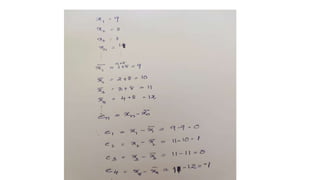 x₁ = 9
x̄₁ = 1+8 = 9
x̄₂ = 2+8 = 10
x̄₃ = 3+8 = 11
x̄₄ = 4+8 = 12
eₙ = xₙ - x̄ₙ
e₁ = x₁ - x̄₁ = 9-9 = 0
e₂ = x₂ - x̄₂ = 11-10 = 1
e₃ = x₃ - x̄₃ = 11-11 = 0
e₄ = x₄ - x̄₄ = 11-12 = -1